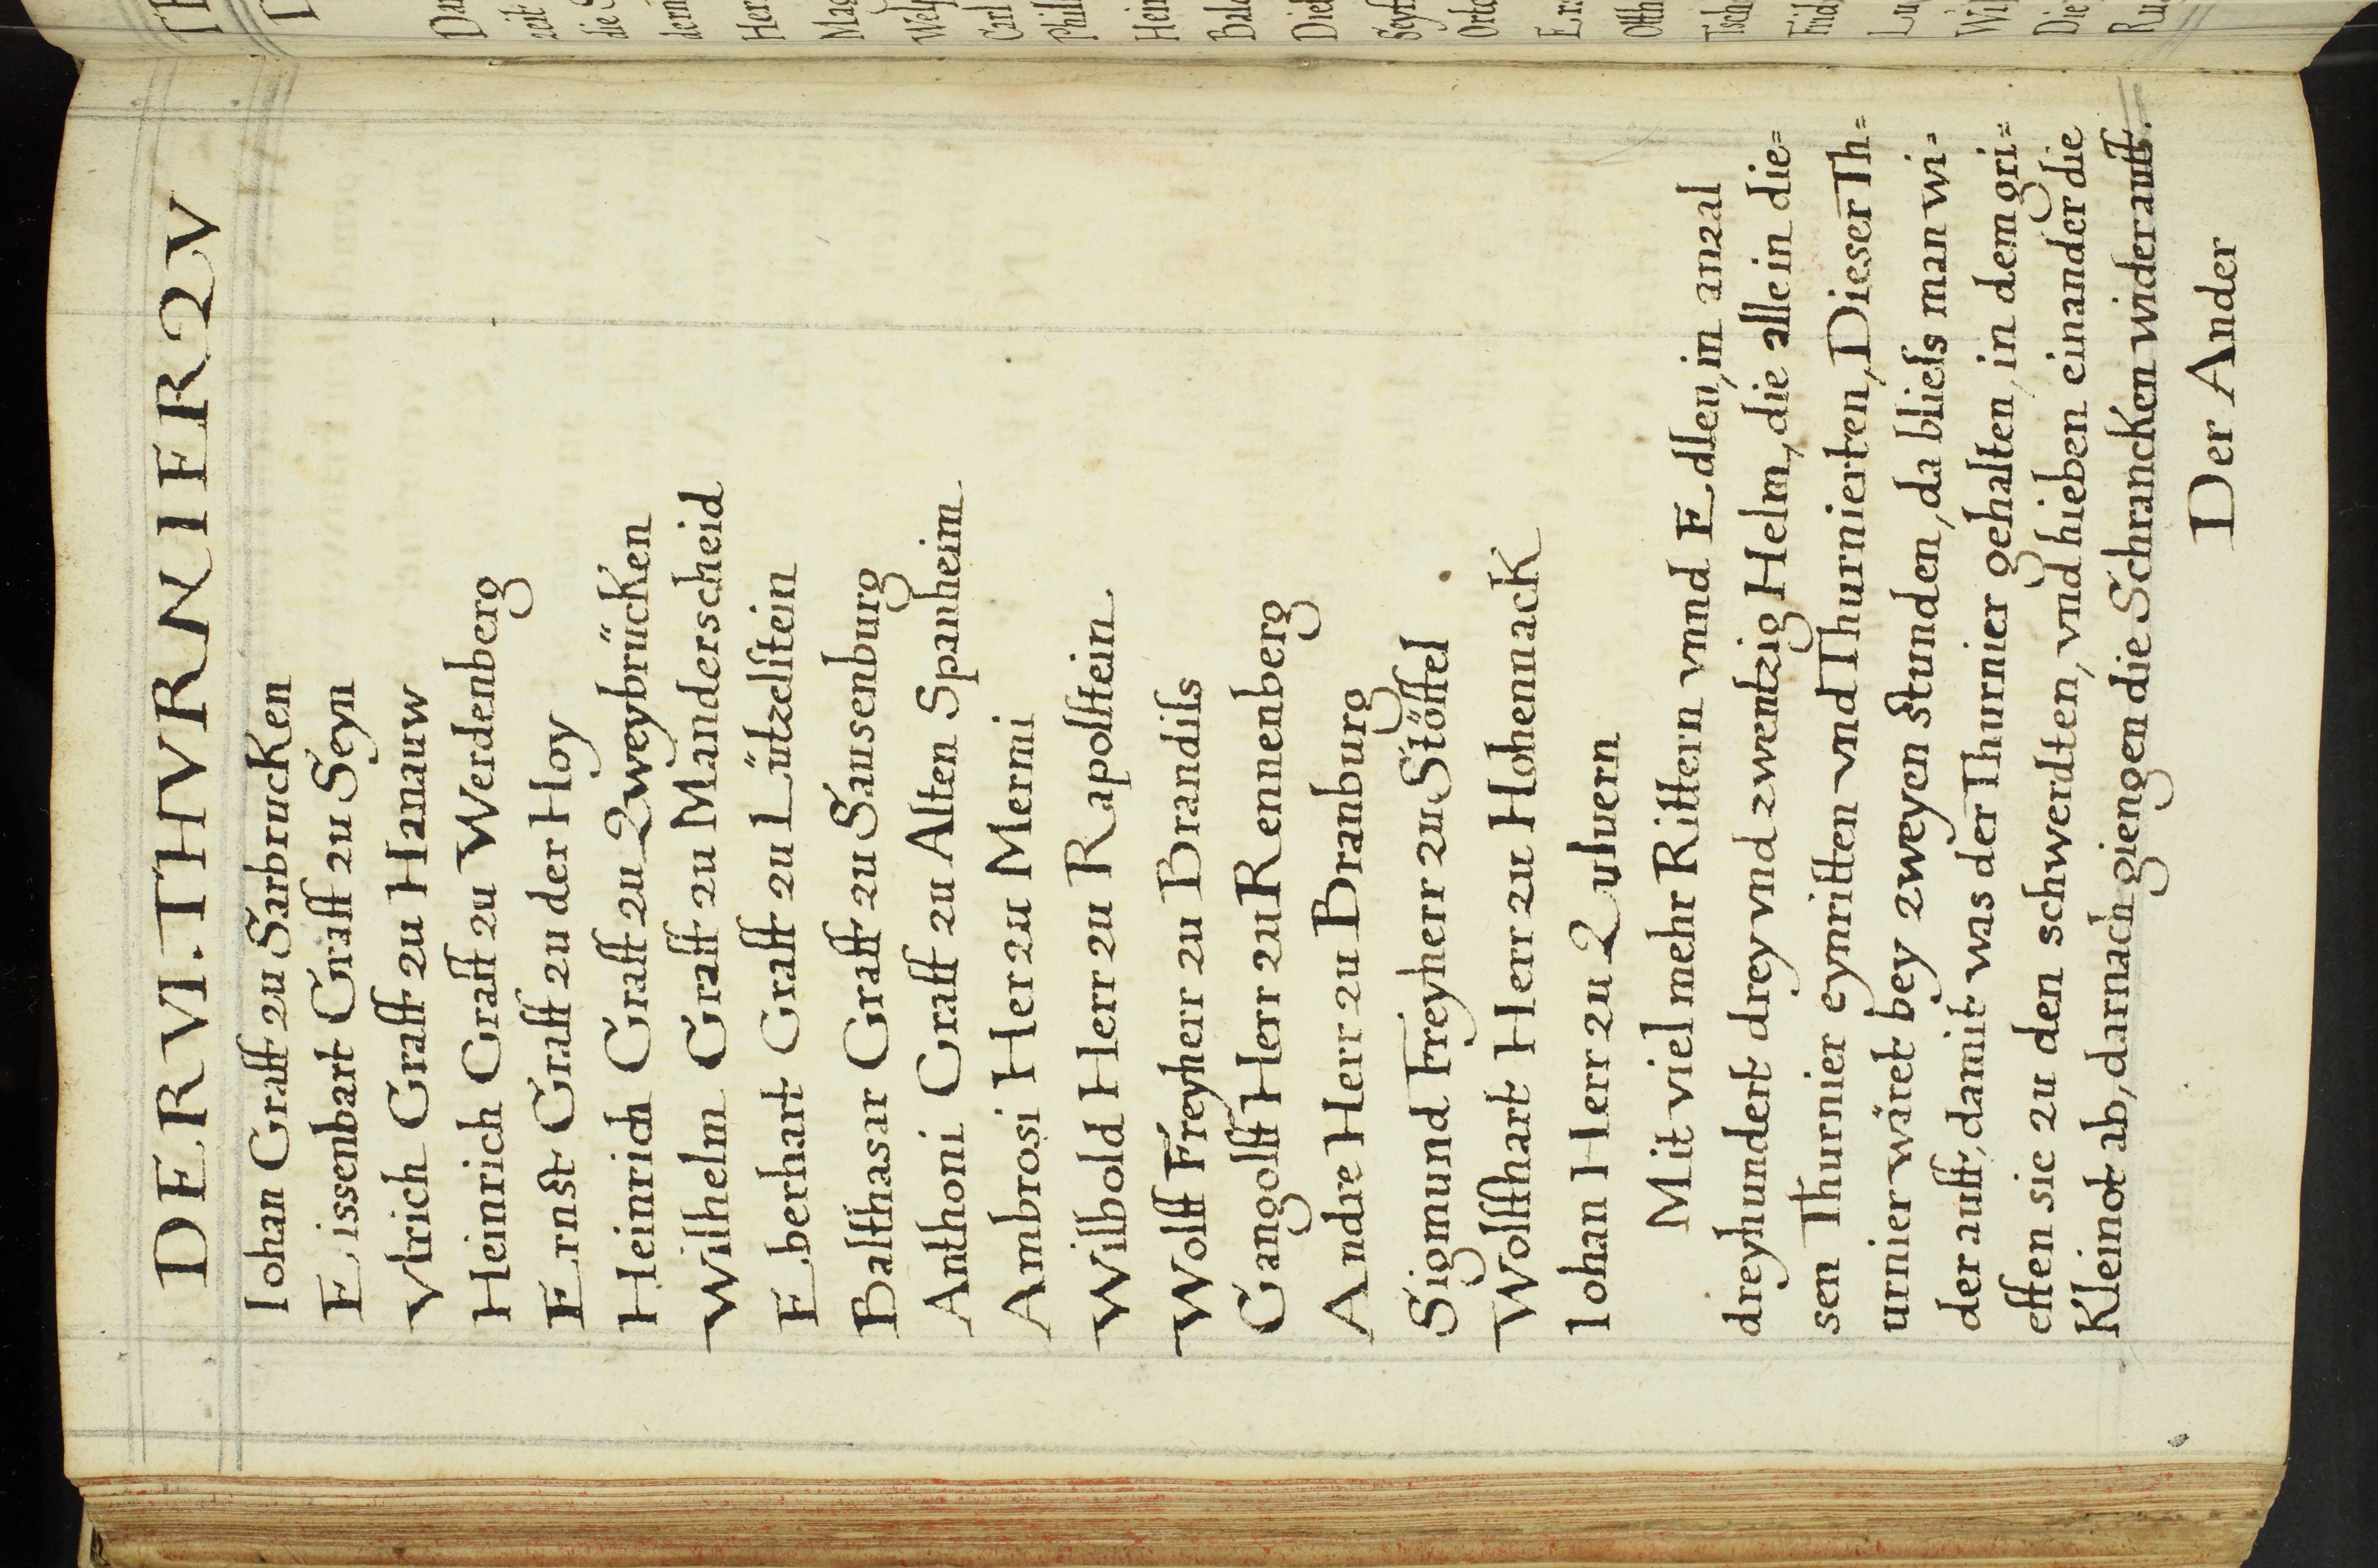 DER VI. THVRNIER ZV
Iohan Graff zu Sarbrucken
Eissenbart Graff zu Seyn
Vlrich Graff zu Hanauw
Heinrich Graff zu Werdenberg
Ernst Graff zu der Hoy
Heinrich Graff zu Zweybrücken
Wilhelm Graff zu Manderscheid
Eberhart Graff zu Lützelstein
Balthasar Graff zu Sausenburg
Anthoni Graff zu Alten Spanheim
Ambrosi Her zu Mermi
Wilbold Herr zu Rapolstein
Wolff Freyherr zu Brandils
Gangolff Herr zu Rennenberg
Andre Herr zu Branburg
Sigmund Freyherr zu Stöffel
Wolffhart Herr zu Hohennack
Iohan Herr zu Zuluern
Mit viel mehr Rittern vnnd Edlen, in anzal
dreyhundert drey vnd zwentzig Helm, die allein die=
sen Thurnier eynritten vnd Thurnierten, Dieser Th=
urnier wäret bey zweyen stunden, da bliels man wi=
der auff, damit was der Thurnier gehalten, in dem gri=
effen sie zu den schwerdten, vnd hieben einander die
Kleinot ab, darnach giengen die Schrancken wider auff.
Der Ander